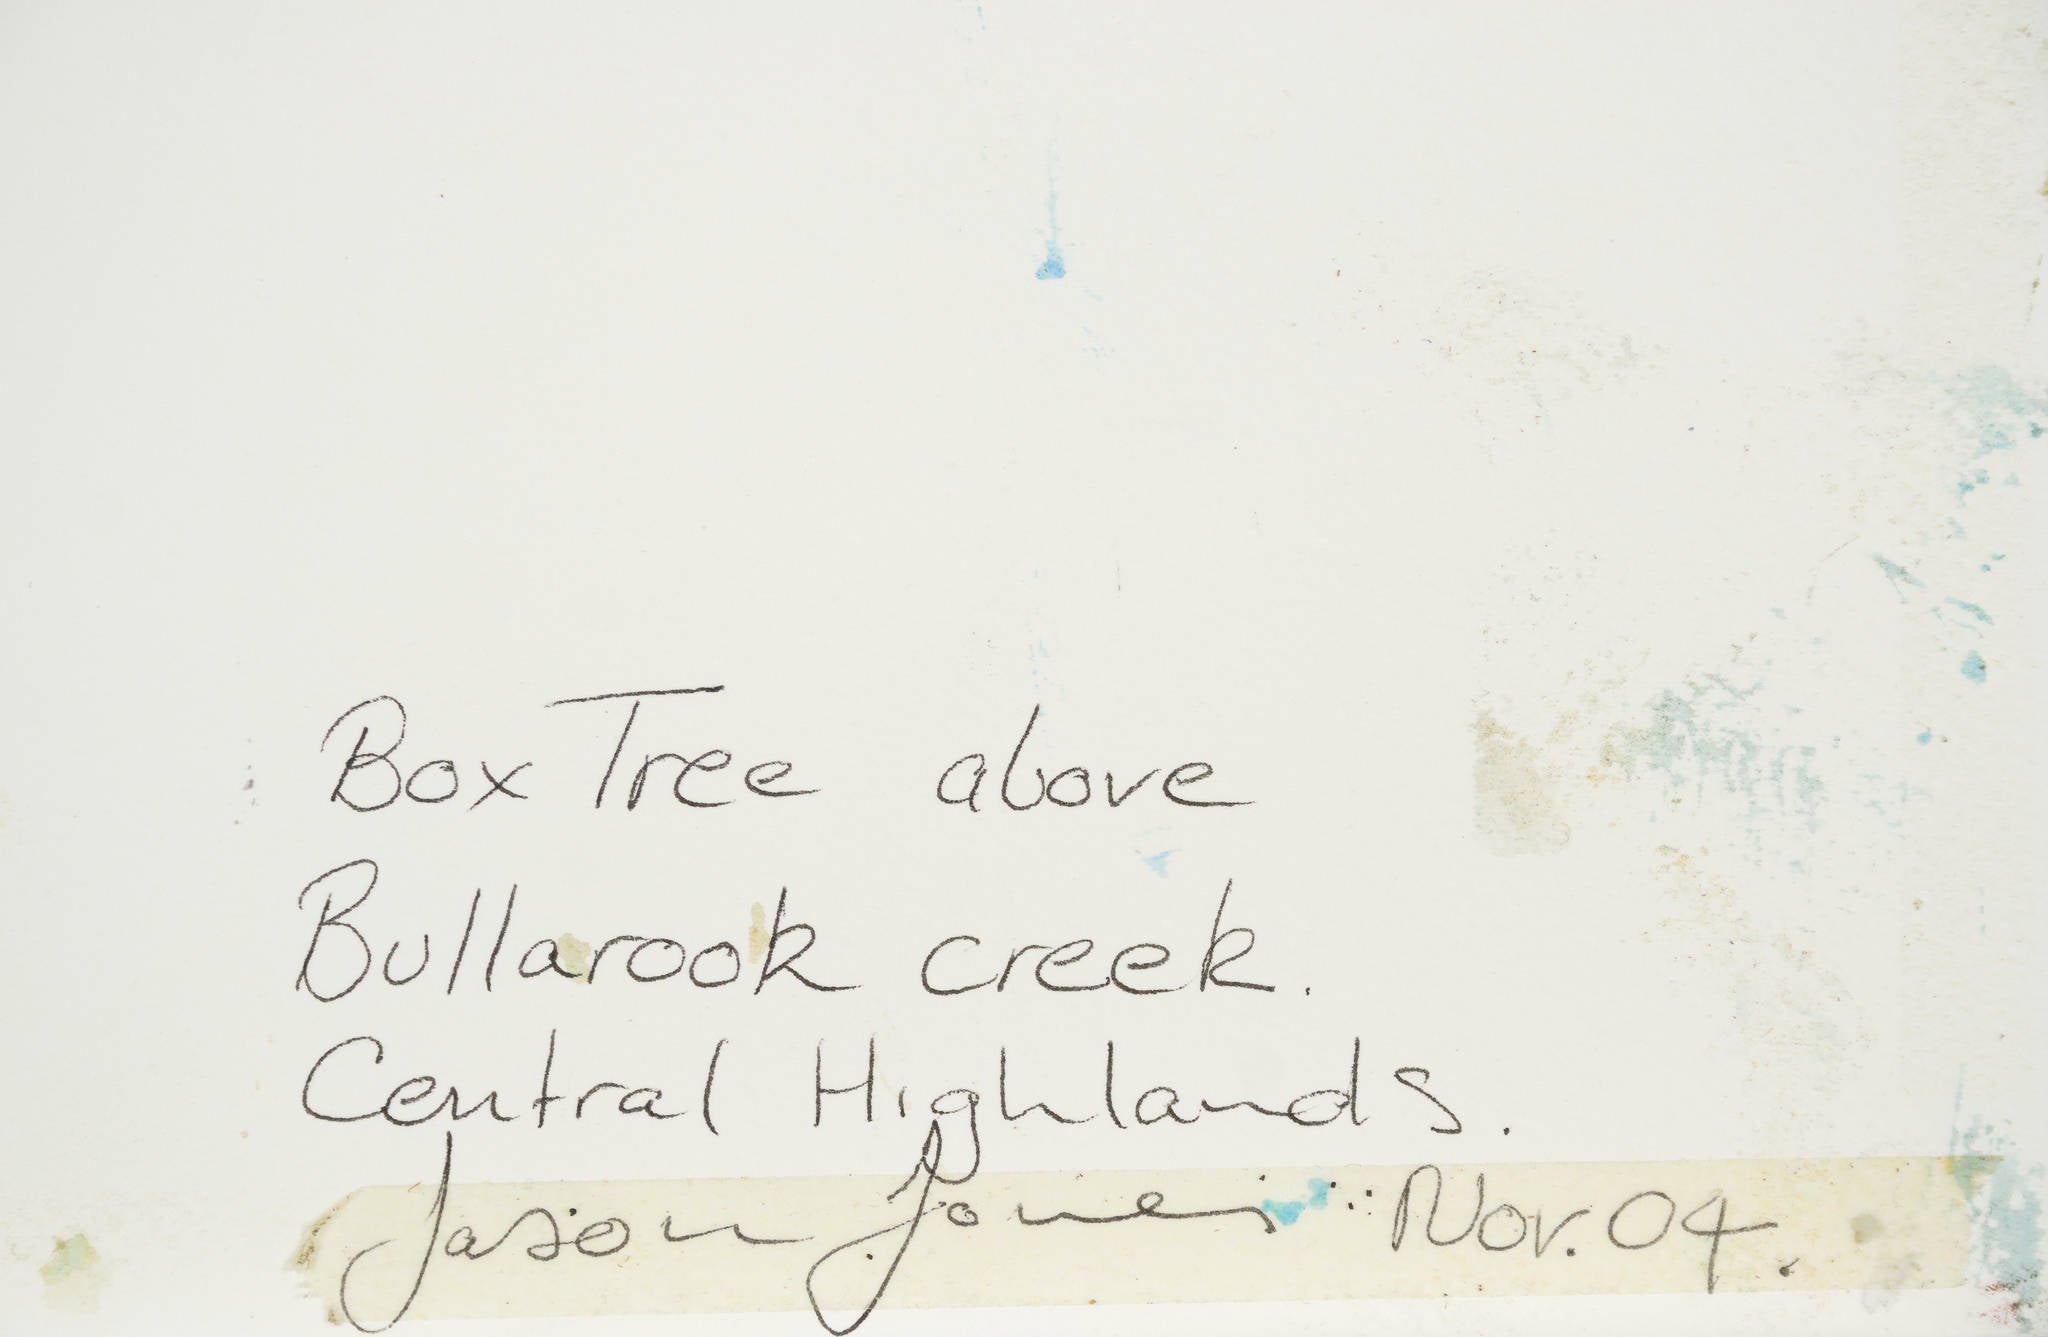 Box Tree above
Bullarook creek.
Central Highlands.
Jason Jones Nov. 04.